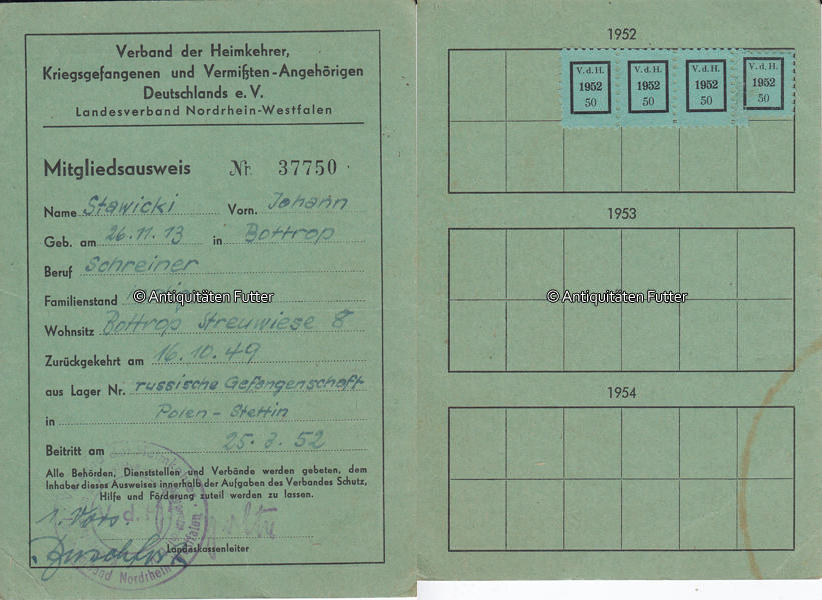 Verband der Heimkehrer,
Kriegsgefangenen und Vermißten-Angehörigen
Deutschlands e. V.
Landesverband Nordrhein-Westfalen
Mitgliedsausweis Nr. 37750
Name Stawicki Vorn. Johann
Geb. am 26.11.13 in Bottrop
Beruf Schreiner
Familienstand
© Antiquitäten Futter
Wohnsitz Bottrop Streuwiese 8
Zurückgekehrt am 16.10.49
aus Lager Nr. russische Gefangenschaft
in Polen - Stettin
Beitritt am 25. 52
Alle Behörden, Dienststellen und Verbände werden gebeten, dem
Inhaber dieses Ausweises innerhalb der Aufgaben des Verbandes Schutz,
Hilfe und Förderung zuteil werden zu lassen.
1. Vors.
V. d. H.
Landeskassenleiter
Nordrhein-Westfalen
1952
V. d. H.
1952
50
V. d. H.
1952
50
V. d. H.
1952
50
V. d. H.
1952
50
1953
© Antiquitäten Futter
1954